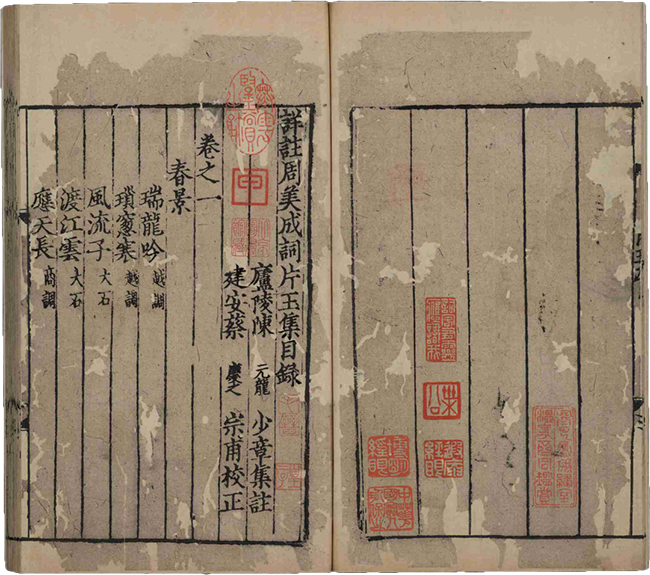 詳註周美成詞片玉集目録
廬陵陳 元龍 少章集註
建安蔡 慶之 宗甫校正
卷之一
春景
瑞龍吟 越調
瑣窻寒 越調
風流子 大石
渡江雲 大石
應天長 商調